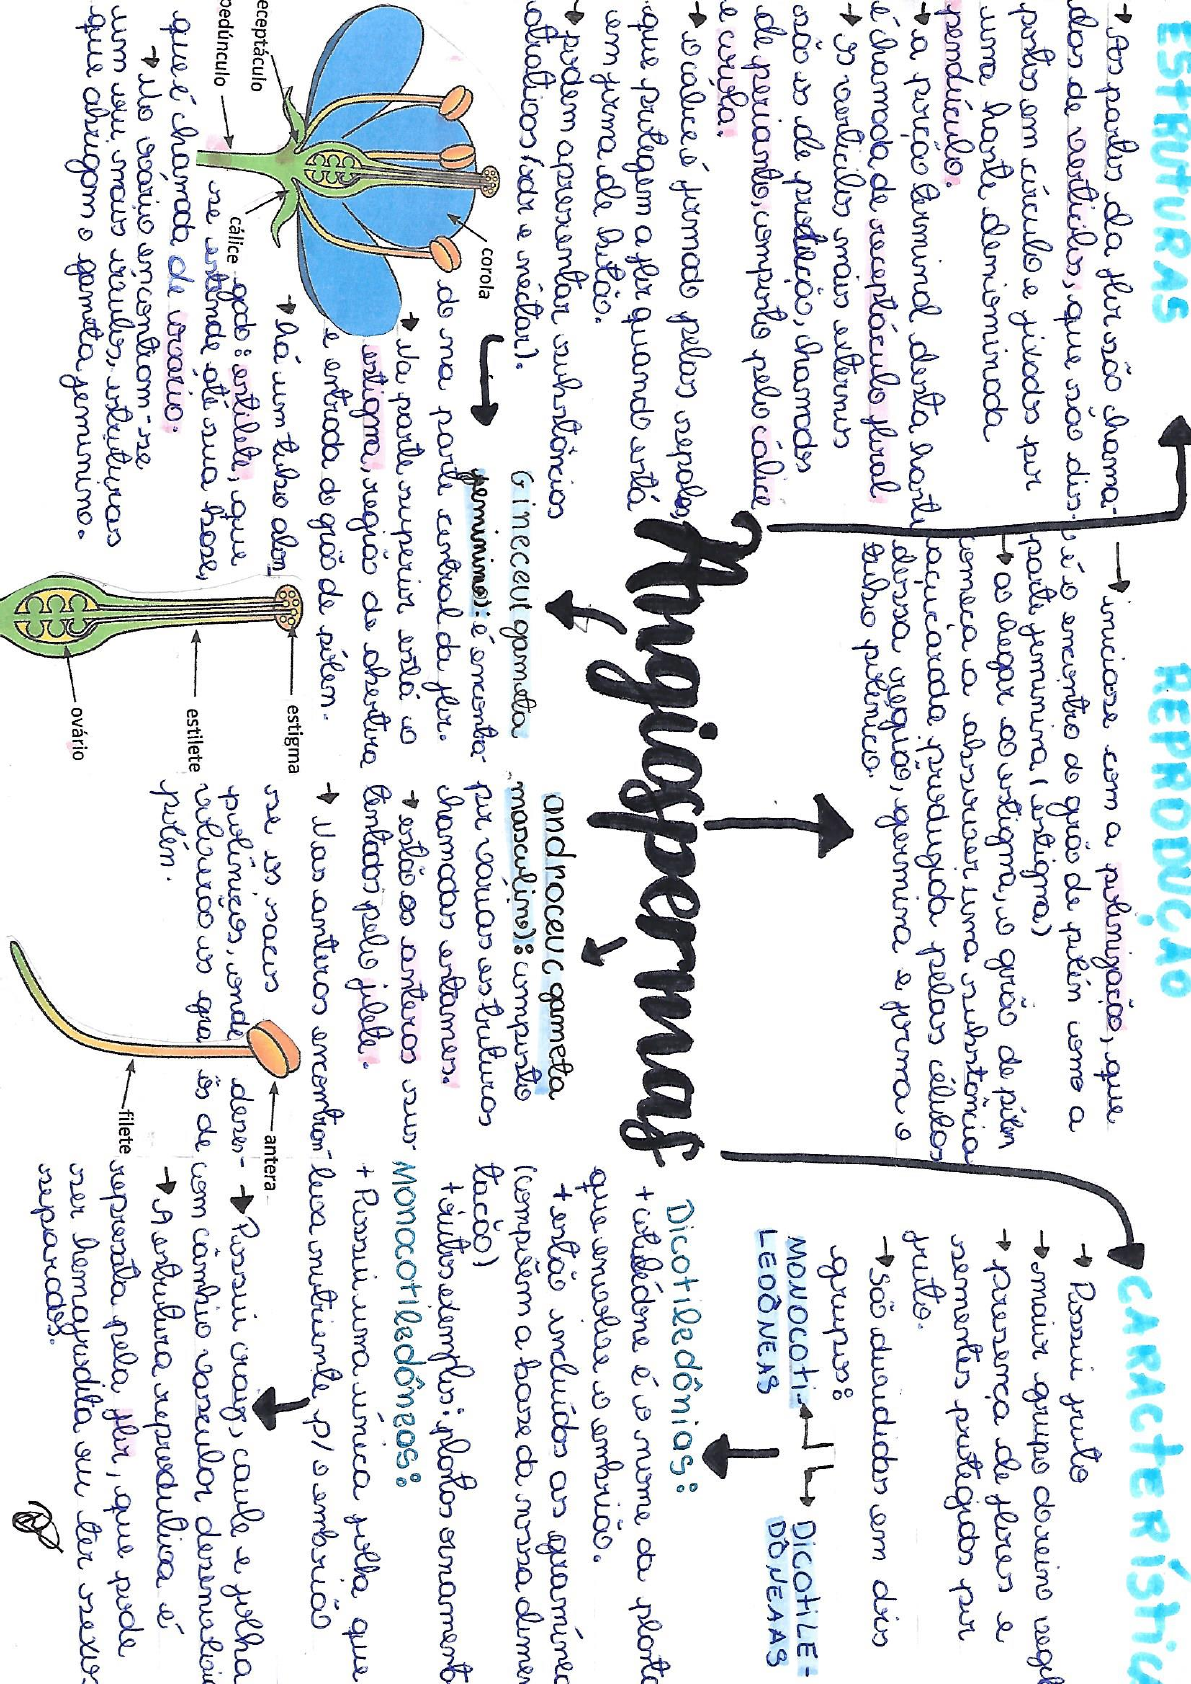 ESTRUTURAS
→ As partes da flor são chama-
das de verticilos, que são dis-
postos em círculo e fixados por
uma haste denominada
pendúculo.
→ a porção terminal desta haste
é chamada de receptáculo floral
→ Os verticilos mais externos
são os de proteção, chamados
de perianto, composto pelo cálice
e corola.
→ o cálice é formado pelas sepalas,
que protegem a flor quando está
em forma de botão.
→ podem apresentar substâncias
atrativas (odor e néctar).
corola
cálice
receptáculo
pedúnculo
Gineceu (gameta
feminino): é encontra
do na parte central da flor.
→ Na parte superior está o
estigma, região de abertura
e entrada do grão de pólen.
→ Há um tubo alon_
gado: estilete, que
se estende até sua base,
que é chamada de ovário.
→ No ovário encontram-se
um ou mais óvulos, estruturas
que abrigam o gameta feminino.
estigma
estilete
ovário
Angiospermas
REPRODUÇÃO
→ iniciase com a polinização, que
é o encontro do grão de pólen com a
parte feminina (estigma)
→ ao chegar ao estigma, o grão de pólen
começa a absorver uma substância
açucarada produzida pelas células
dessa região, germina e forma o
tubo polínico.
androceu (gameta
masculino): composto
por várias estruturas
chamadas estames.
→ estão as anteras sus
tentadas pelo filete.
→ Nas anteras encontram-
se os sacos
polínicos, onde desen-
volverão os grã os de
pólen.
antera
filete
CARACTERÍSTIC
→ Possui fruto
→ maior grupo do reino veget
→ presença de flores e
sementes protegidas por
fruto.
→ São dividídas em dois
grupos:
MONOCOTI-
LEDÔNEAS
DICOTILE-
DÔNEAAS
Dicotiledônias:
+ cotilédone é o nome da planta
que envolve o embrião.
+ estão incluídos as gramínea
(compõem a base da nossa alimen
tação)
+ outros exemplos: plantas ornament
Monocotiledôneas:
+ Possui uma única folha que
leva nutriente p/ o embrião
→ Possui raiz, caule e folha
com câmbio vascular desenvolvi
→ A estrutura reprodutiva é
represta pela flor, que pode
ser hemafrodita ou ter sexos
separados.